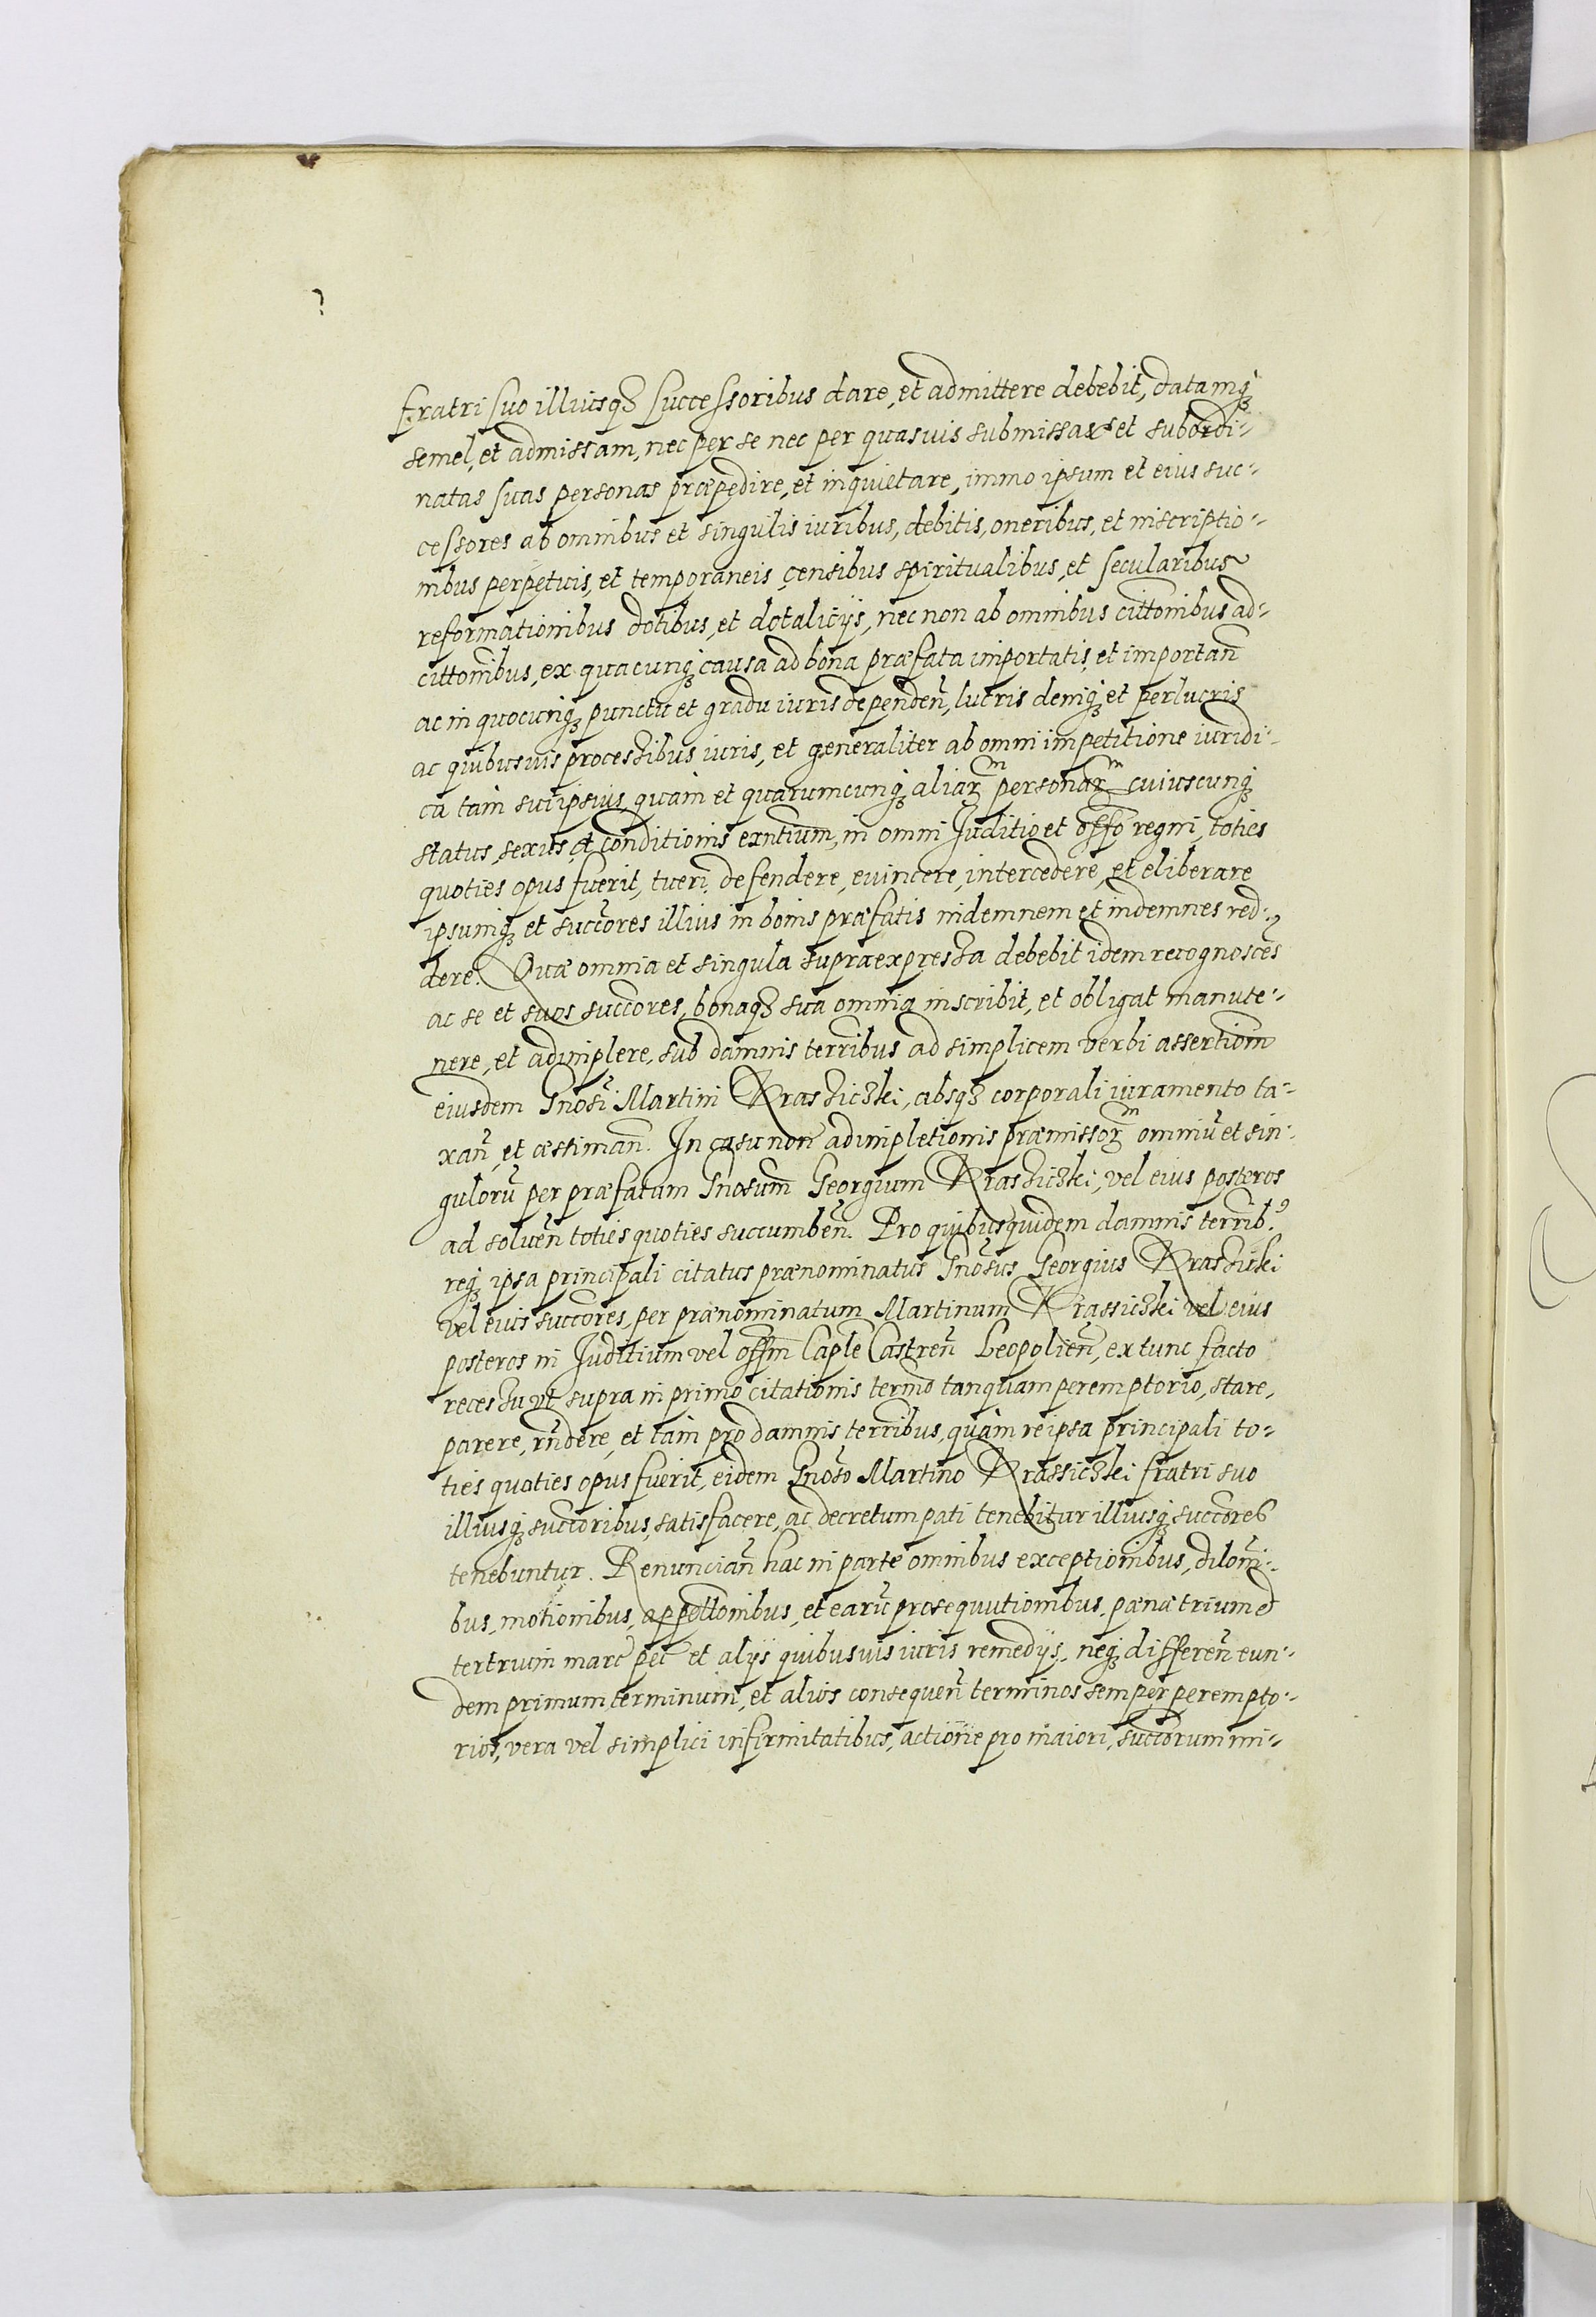 fratri suo illiusq3 successoribus dare, et admittere debebit, datamq3
semel, et admissam, nec per se nec per quasuis submissas et subordi-
natas suas personas præpedire, et inquietare, immo ipsum et eius suc-
cessores ab omnibus et singulis iuribus, debitis, oneribus, et inscriptio-
nibus perpetuis, et temporaneis censibus spiritualibus, et secularibus
reformationibus dotibus, et dotalicijs, nec non ab omnibus cittonibus ad-
cittonibus, ex quacunq3 causa ad bona præfata importatis, et importan̄
ac in quocunq3 punctu et gradu iuris dependen̄, lucris deniq3 et perlucris
ac quibusuis processibus iuris, et generaliter ab omni impetitione iuridi-
ca tam sui ipsius, quam et quarumcunq3 aliarꝫ personarꝫ cuiuscunq3
status, sexus, et conditionis exn̄tium, in omni Juditio et offo regni, toties
quoties opus fuerit, tueri, defendere, euincere, intercedere, et eliberare
ipsumq3 et succores illius in bonis præfatis indemnem et indemnes red-
dere. Quæ omnia et singula supraexpressa debebit idem recognosceñ
ac se et suos succores, bonaq3 sua omnia inscribit, et obligat manute-
nere, et adimplere, sub damnis terribus ad simplicem verbi assertiom̄
eiusdem Gnosi Martini Krasiczki, absq3 corporali iuramento ta-
xan̄, et æstiman̄. In casu non adimpletionis præmissorꝫ omniū et sin-
gulorū per præfatum Gnosum Georgium Krasiczki, vel eius posteros
ad soluen̄ toties quoties succumben̄. Pro quibusquidem damnis terrib9
req3 ipsa principali citatus prænominatus Gnosus Georgius Krasicki
vel eius succores, per prænominatum Martinum Krassiczki vel eius
posteros in Juditium vel offm Caple Castren̄ Leopolien̄, ex tunc facto
recessu vt supra in primo citationis termo tanquam peremptorio, stare,
parere, rn̄dere, et tam pro damnis terribus, quàm re ipsa principali to-
ties quoties opus fuerit, eidem Gnoso Martino Krassiczki fratri suo
illiusq3 succoribus, satisfacere, ac decretum pati tenebitur illiusq3 succores
tenebuntur. Renuncian̄ hac in parte omnibus exceptionibus, diloni-
bus, motionibus, appellonibus, et earū prosequutionibus, pænæ trium
tertrum marc pec et alijs quibusuis iuris remedijs, neq3 differen̄ eun-
dem primum terminum, et alios consequen̄ terminos semper perempto-
rios, vera vel simplici infirmitatibus, actione pro maiori, succorum mi-